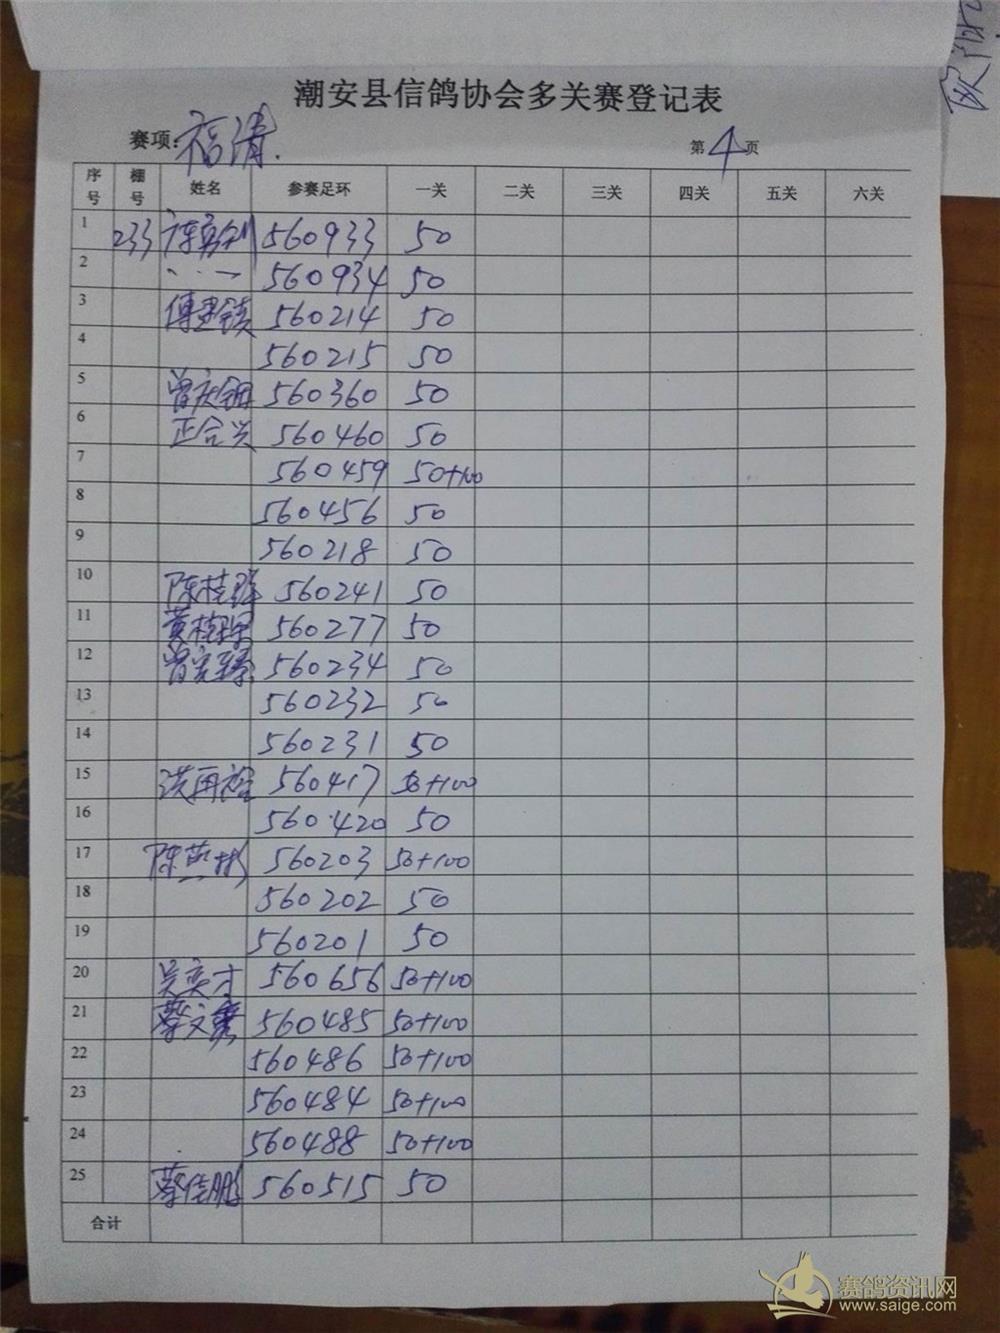 潮安县信鸽协会多关赛登记表
赛项: 福清. 第 4 页
序号 棚号 姓名 参赛足环 一关 二关 三关 四关 五关 六关
1 233 560933 50
2 560934 50
3 傅 镇 560214 50
4 560215 50
5 曾庆 560360 50
6 正合兴 560460 50
7 560459 50+100
8 560456 50
9 560218 50
10 陈桂 560241 50
11 黄 560277 50
12 曾 560234 50
13 560232 50
14 560231 50
15 洪再裕 560417 50+100
16 560420 50
17 陈燕彬 560203 50+100
18 560202 50
19 560201 50
20 吴奕才 560656 50+100
21 蔡文 560485 50+100
22 560486 50+100
23 560484 50+100
24 560488 50+100
25 蔡佳鹏 560515 50
合计
赛鸽资讯网
www.saige.com